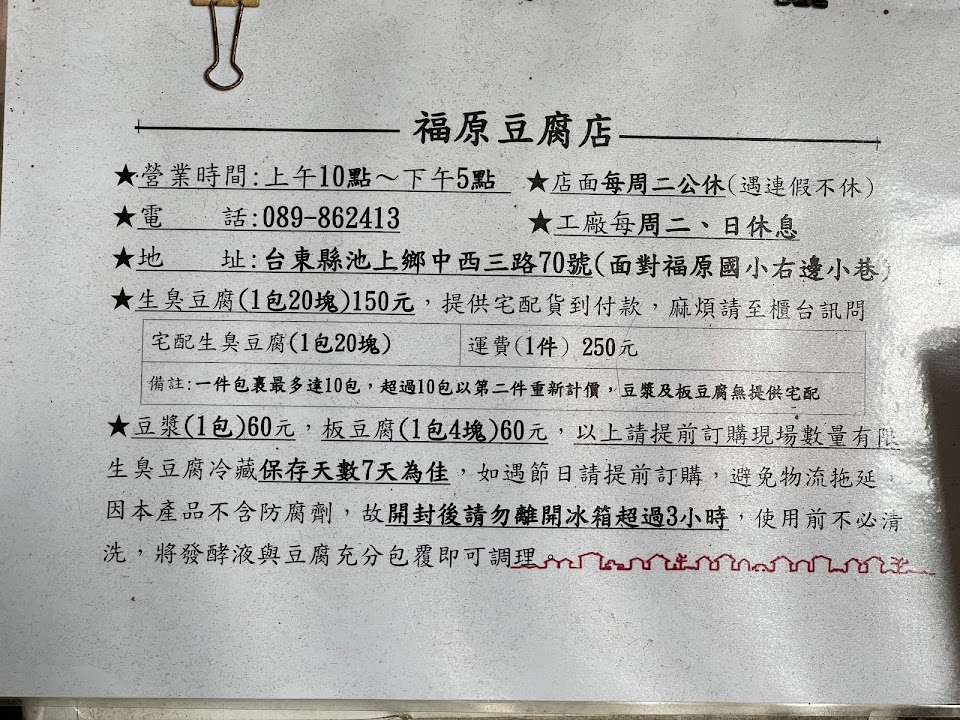 福原豆腐店
★營業時間:上午10點～下午5點 ★店面每周二公休(遇連假不休)
★電 話:089-862413 ★工廠每周二、日休息
★地 址:台東縣池上鄉中西三路70號(面對福原國小右邊小巷)
★生臭豆腐(1包20塊)150元,提供宅配貨到付款,麻煩請至櫃台訊問
宅配生臭豆腐(1包20塊) 運費(1件) 250元
備註:一件包裹最多達10包,超過10包以第二件重新計價,豆漿及板豆腐無提供宅配
★豆漿(1包)60元,板豆腐(1包4塊)60元,以上請提前訂購現場數量有限
生臭豆腐冷藏保存天數7天為佳,如遇節日請提前訂購,避免物流拖延。
因本產品不含防腐劑,故開封後請勿離開冰箱超過3小時,使用前不必清
洗,將發酵液與豆腐充分包覆即可調理。